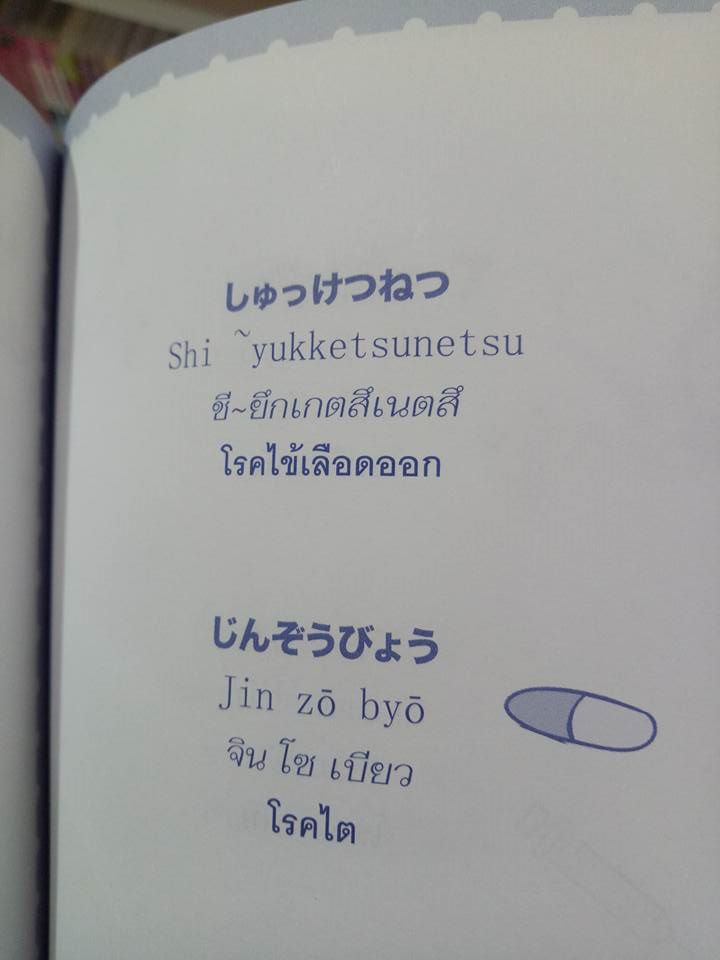 しゅっけつねつ
Shi ~yukketsunetsu
ชี~ยึกเกตสึเนตสึ
โรคไข้เลือดออก
じんぞうびょう
Jin zō byō
จิน โซ เบียว
โรคไต